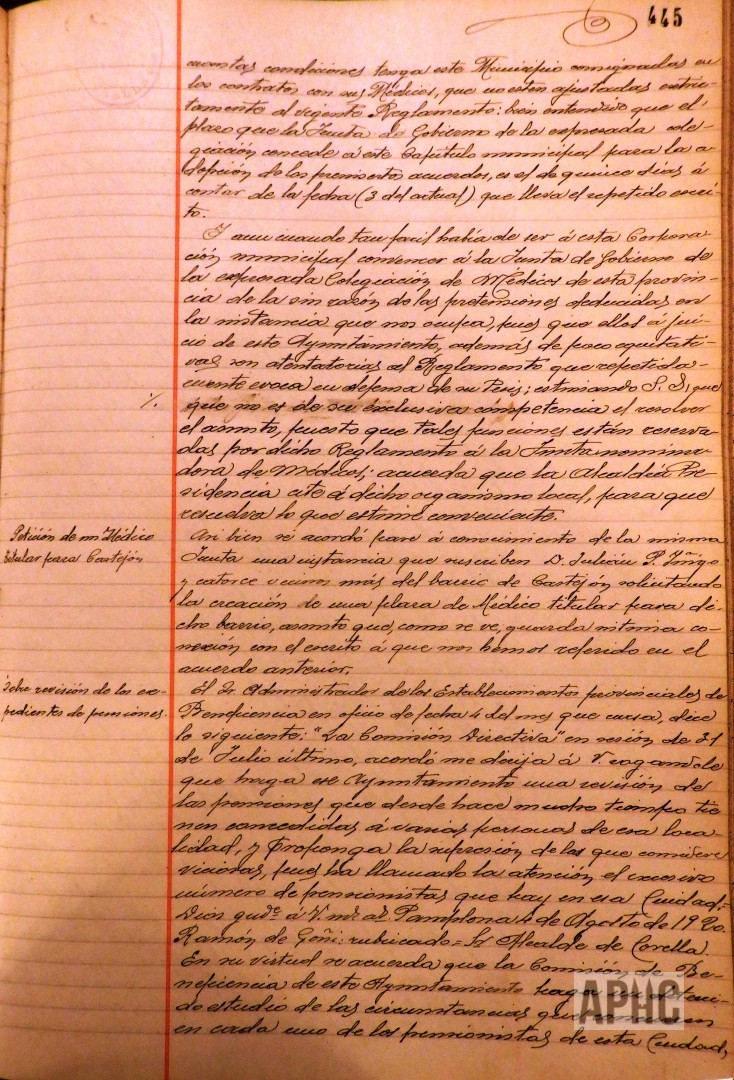 445
cuantas condiciones tenga este Municipio consignadas en
los contratos con sus Médicos, que no estén ajustadas estric-
tamente al vigente Reglamento: bien entendido que el
plazo que la Junta de Gobierno de la expresada cole-
giación concede á este Capítulo municipal para la a-
dopción de los premisos acuerdos, es el de quince dias á
contar de la fecha (3 del actual) que lleva el repetido escri-
to.
Y aun cuando tan facil habia de ser á esta Corpora-
ción municipal convencer á la Junta de Gobierno de
la expresada Colegiación de Médicos de esta provin-
cia de la sin razón de las pretensiones deducidas en
la instancia que nos ocupa, pues que ellas á jui-
cio de este Ayuntamiento, además de poco equitati-
vas son atentatorias al Reglamento que repetida-
mente evoca en defensa de su tesis; estimando S. S. que
que no es de su exclusiva competencia el resolver
el asunto, puesto que tales funciones están reserva-
das por dicho Reglamento á la Junta nomina-
dora de Médicos; acuerda que la Alcaldia Pre-
sidencia cite á dicho organismo local, para que
resuelva lo que estime conveniente.
Petición de un Médico
titular para Castejón
Asi bien se acordó pase á conocimiento de la misma
Junta una instancia que suscriben D. Julián P. Iñigo
y catorce vecinos más del barrio de Castejón solicitando
la creación de una plaza de Médico titular para di-
cho barrio, asunto que, como se ve, guarda intima co-
nexión con el escrito á que nos hemos referido en el
acuerdo anterior.
Sobre revisión de los ex-
pedientes de pensiones.
El Sr Administrador de los Establecimientos provinciales de
Beneficencia en oficio de fecha 4 del mes que cursa, dice
lo siguiente: "La Comisión Directiva" en sesión de 31
de Julio último, acordó me dirija á V. rogandole
que haga ese Ayuntamiento una revisión de
las pensiones que desde hace mucho tiempo tie-
nen concedidas á varias personas de esa loca-
lidad, y proponga la supresión de las que considere
viciosas, pues ha llamado la atención el excesivo
número de pensionistas que hay en esa Ciudad.
Dios gudᵉ á V. ms. as. Pamplona 4 de Agosto de 1920.
Ramón de Goñi: rubicado = Sr Alcalde de Corella
En su virtud se acuerda que la Comisión de Be-
neficiencia de este Ayuntamiento haga un deteni-
do estudio de las circunstancias que concurren
en cada uno de los pensionistas de esta Ciudad,
APHC